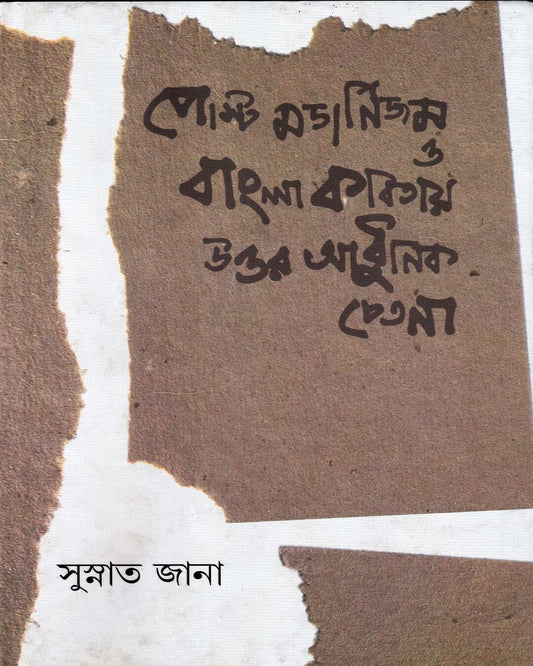 পোস্ট মডার্নিজম
ও
বাংলা কবিতায়
উত্তর আধুনিক
চেতনা
সুস্নাত জানা